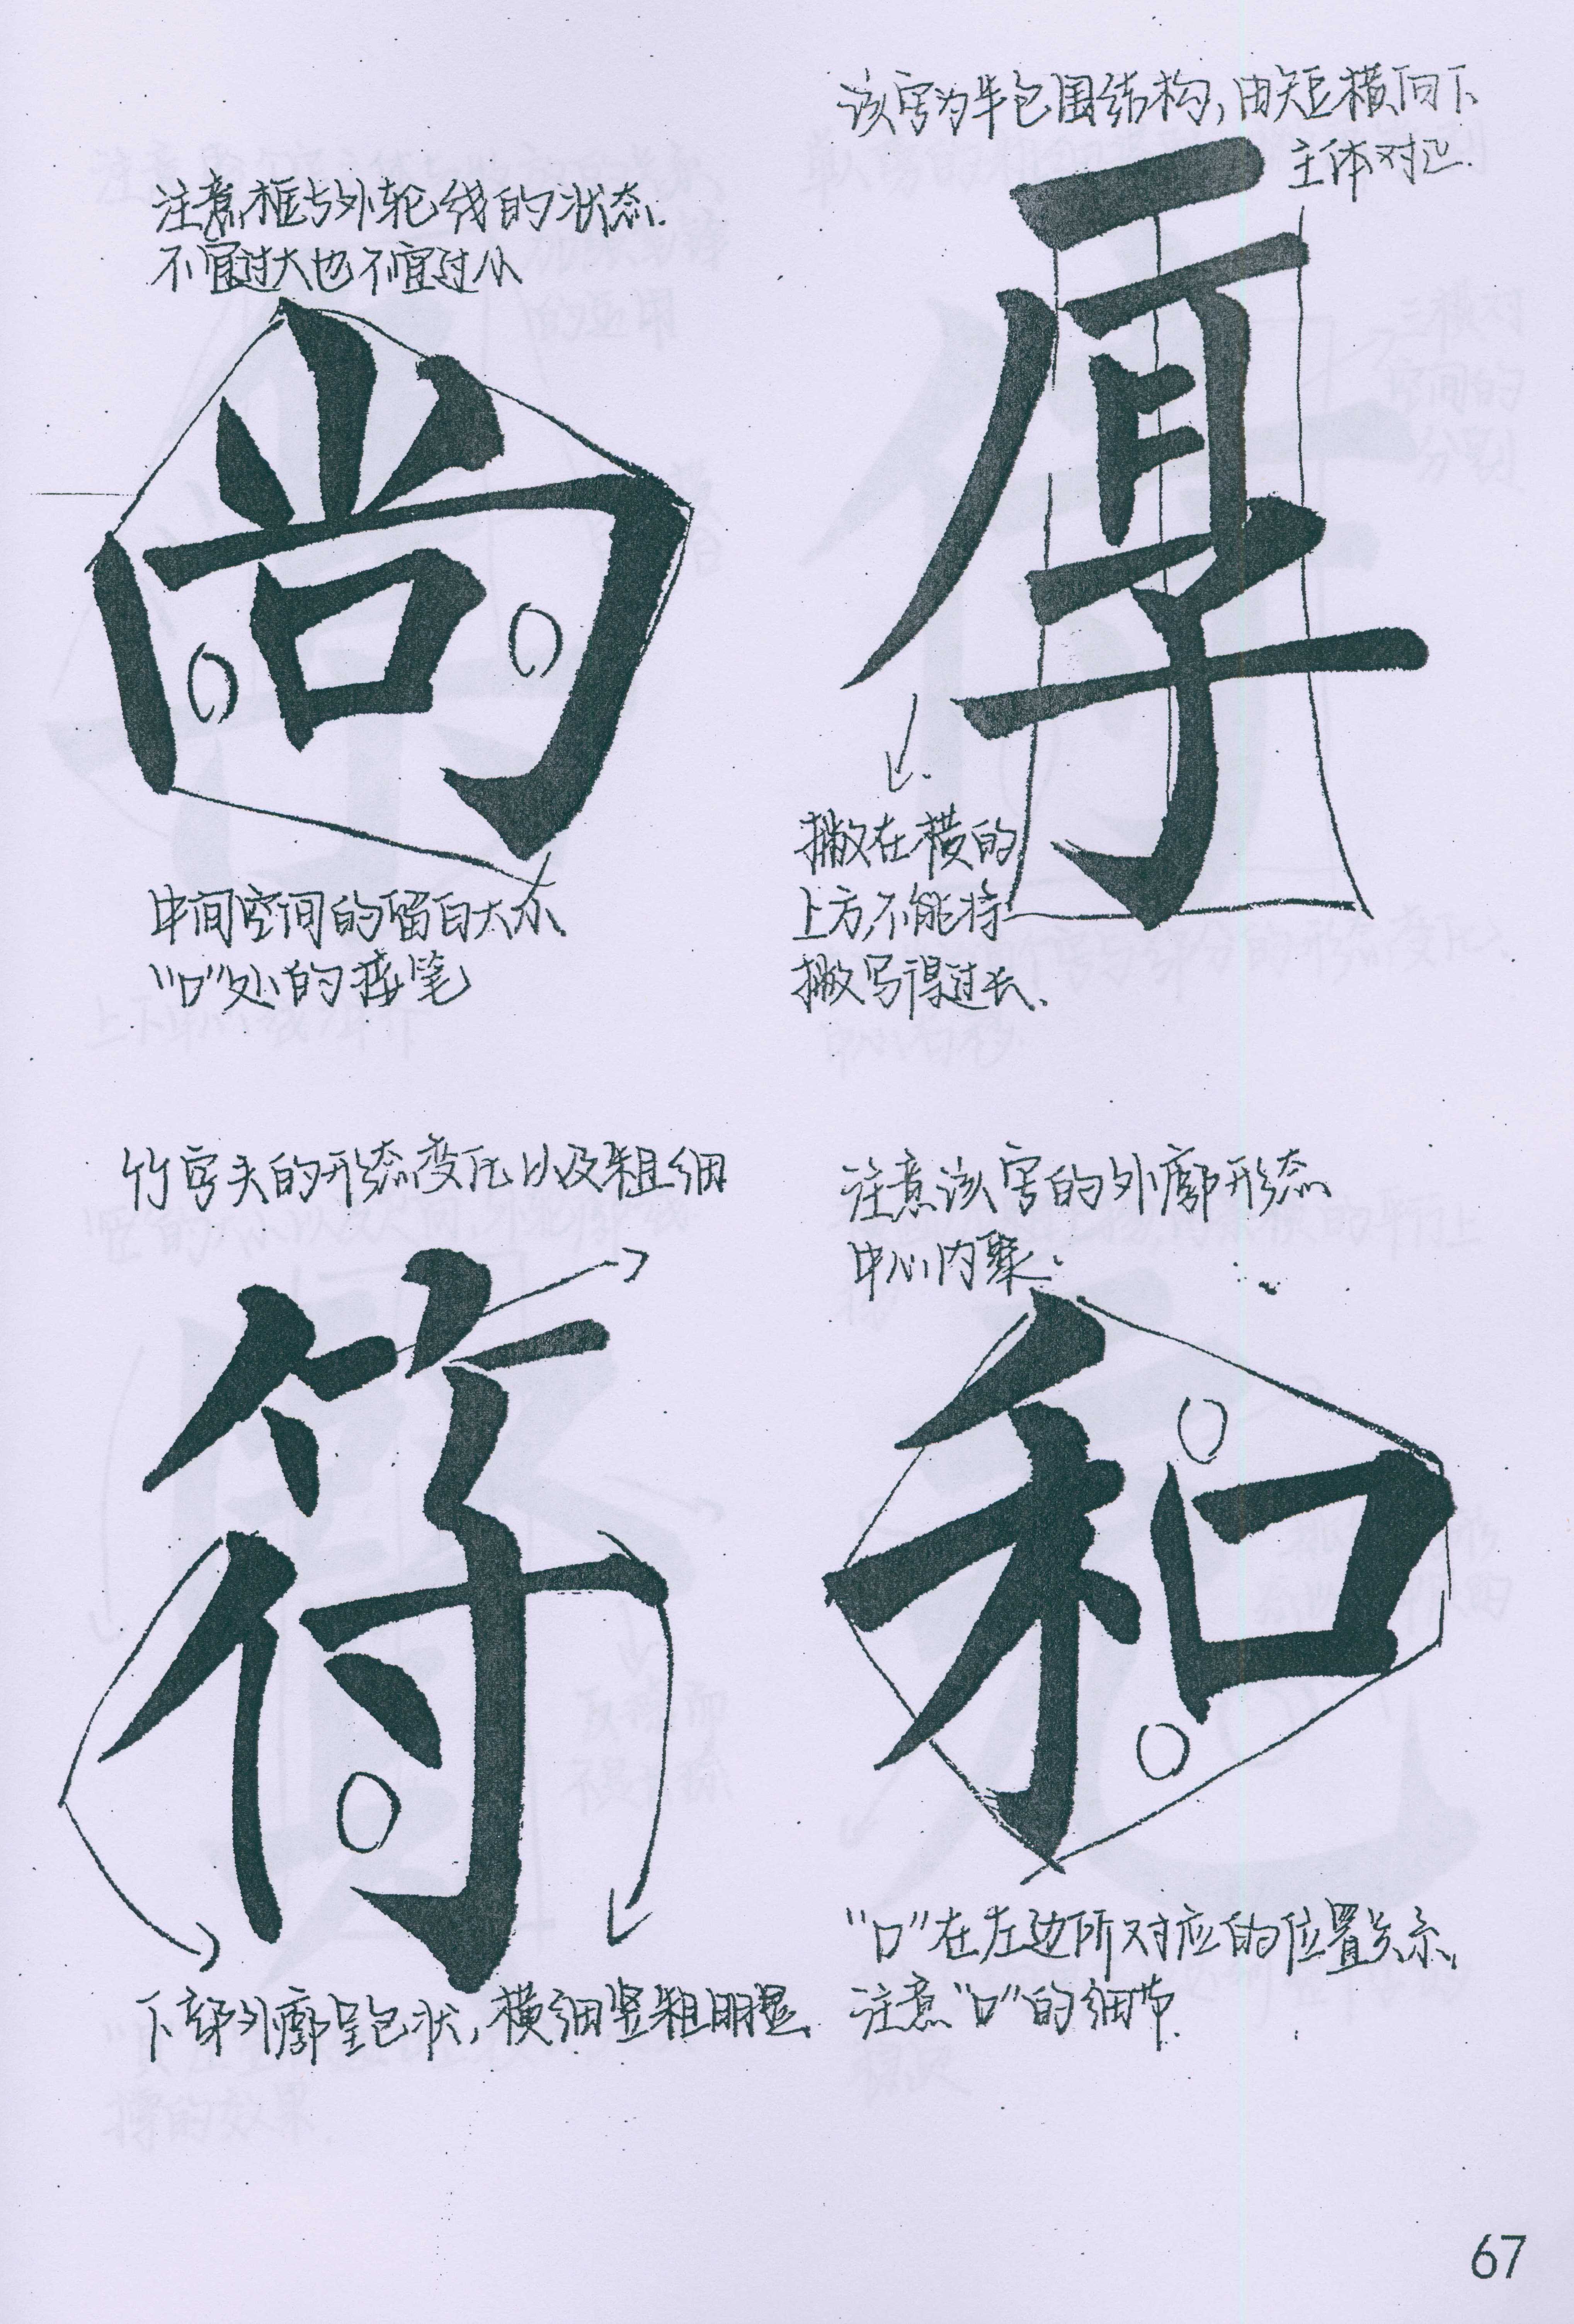 注意框与外轮线的状态.
不宜过大也不宜过小
尚
中间空间的留白大小、
“口”处的接笔
该字为半包围结构,由短横向下
主体对正.
厚
撇在横的
上方,不能将
撇写得过长、
竹字头的形态变化以及粗细
符
下部外廓呈包状,横细竖粗明显、
注意该字的外廓形态、
中心内聚.
和
“口”在左边所对应的位置关系、
注意“口”的细节.
67